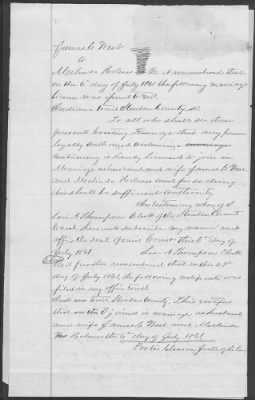 James C. West
to
Melinda Holmes Be it remembered that
on the 6th day of July 1861 the following marriage
license was issued to wit.
Indiana to wit Steuben County, ss.
To all who shall see these
presents Greeting Know ye that any person
legally authorized to solemnize
is hereby licensed to join in
Marriage as husband and wife James C West
and Melinda Holmes and for so doing
this shall be sufficient authority.
In testimony whereof I
A Thompson Clerk of the Steuben Circuit
Court, hereunto subscribe my name and
affix the seal of said Court this 6th day of
July 1861 A Thompson Clerk
Be it further remembered that on this
day of July 1861, the following certificate was
filed in my office to wit
Indiana to wit Steuben County. This certifies
that on the I joined in marriage as husband
and wife James C West and Melinda
Holmes the 6th day of July 1861
Justice of the Peace